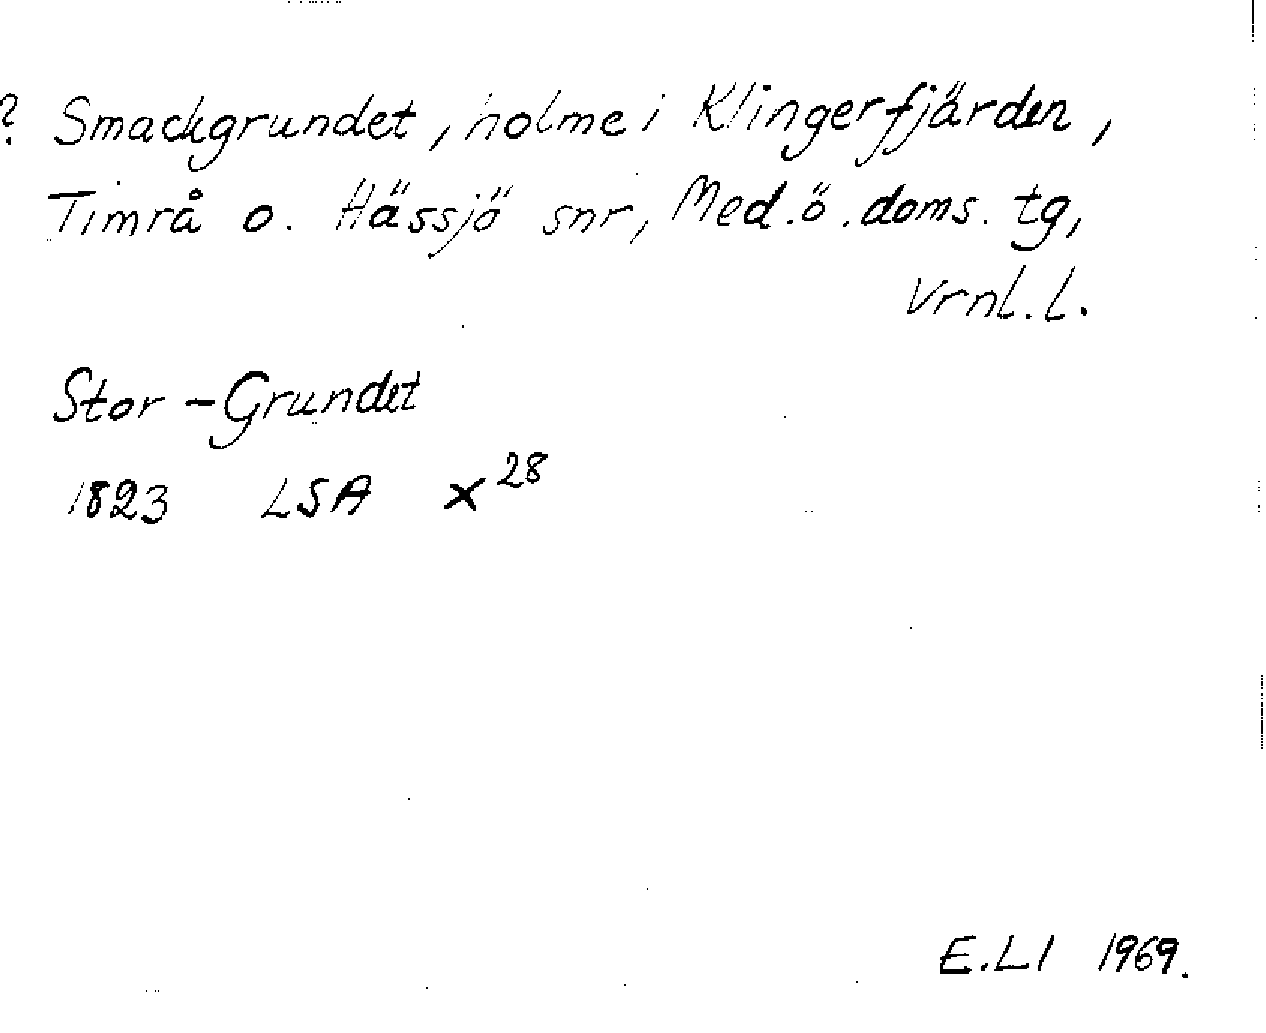 ? Smackgrundet, holme i Klingerfjärden,
Timrå o. Hässjö snr, Med.ö.doms.tg,
Vrnl.l.
Stor-Grundet
1823 LSA x²⁸
E.Ll 1969.